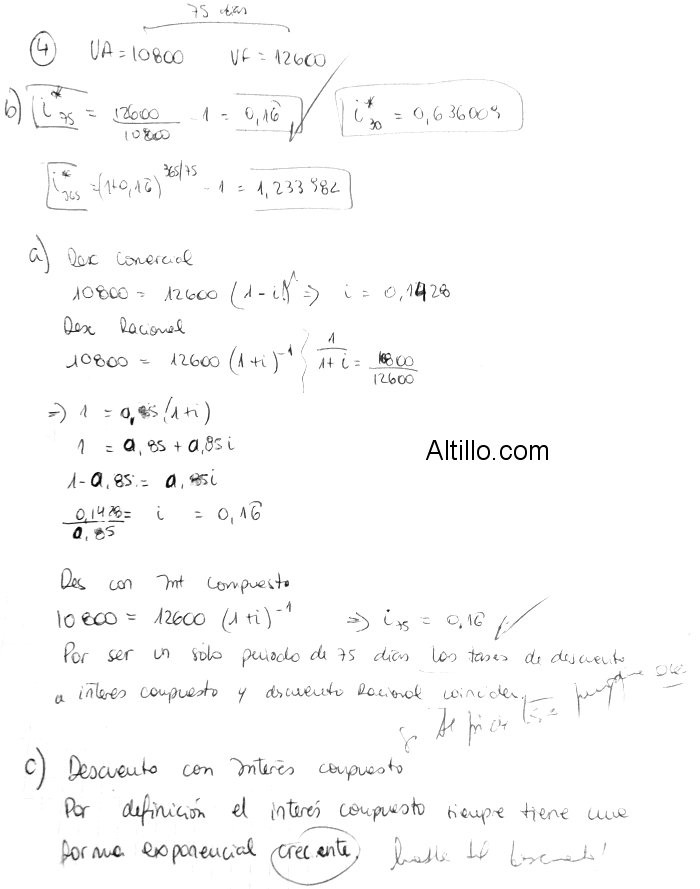 75 días
④ VA=10800 VF=12600
b) i*75 = 12600/10800 - 1 = 0,16̂ i*30 = 0,636009
i*365 = (1+0,16̂)^365/75 - 1 = 1,233982
a) Des comercial
10800 = 12600 (1-i)^1 => i = 0,1428
Des Racional
10800 = 12600 (1+i)^-1 } 1/1+i = 10800/12600
=> 1 = 0,85 (1+i)
1 = 0,85 + 0,85i
1-0,85 = 0,85i
0,1428/0,85 = i = 0,16̂
Des con Int compuesto
10800 = 12600 (1+i)^-1 => i75 = 0,16̂
Por ser un solo periodo de 75 días las tasas de descuento
a interes compuesto y descuento Racional coinciden
Altillo.com
c) Descuento con Interés compuesto
Por definición el interés compuesto siempre tiene una
forma exponencial creciente,